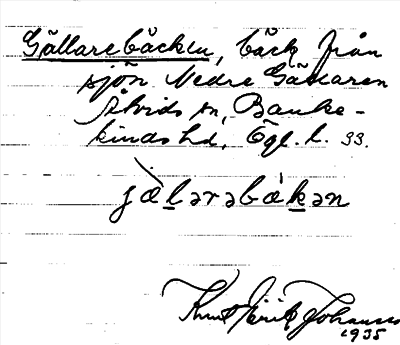 Gällarebäcken, bäck från
sjön Nedre Gällaren
Åtvids sn, Banke-
kinds hd, Ögl. l. 33.
jälarəbäkən
Knut Erik Johansson
1935